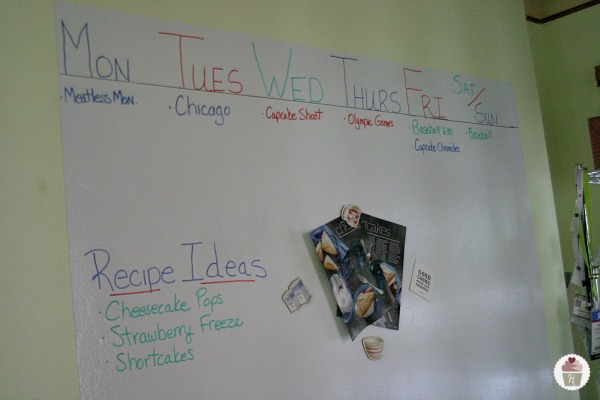 MON TUES WED THURS FRI SAT/SUN
· Meatless Mon.
· Chicago
· Cupcake Shoot
· Olympic Games
· Baseball 6:30
Cupcake Chronicles
· Baseball
RECIPE IDEAS
· Cheesecake Pops
· Strawberry Freeze
· Shortcakes
GOOD
COOKS
H